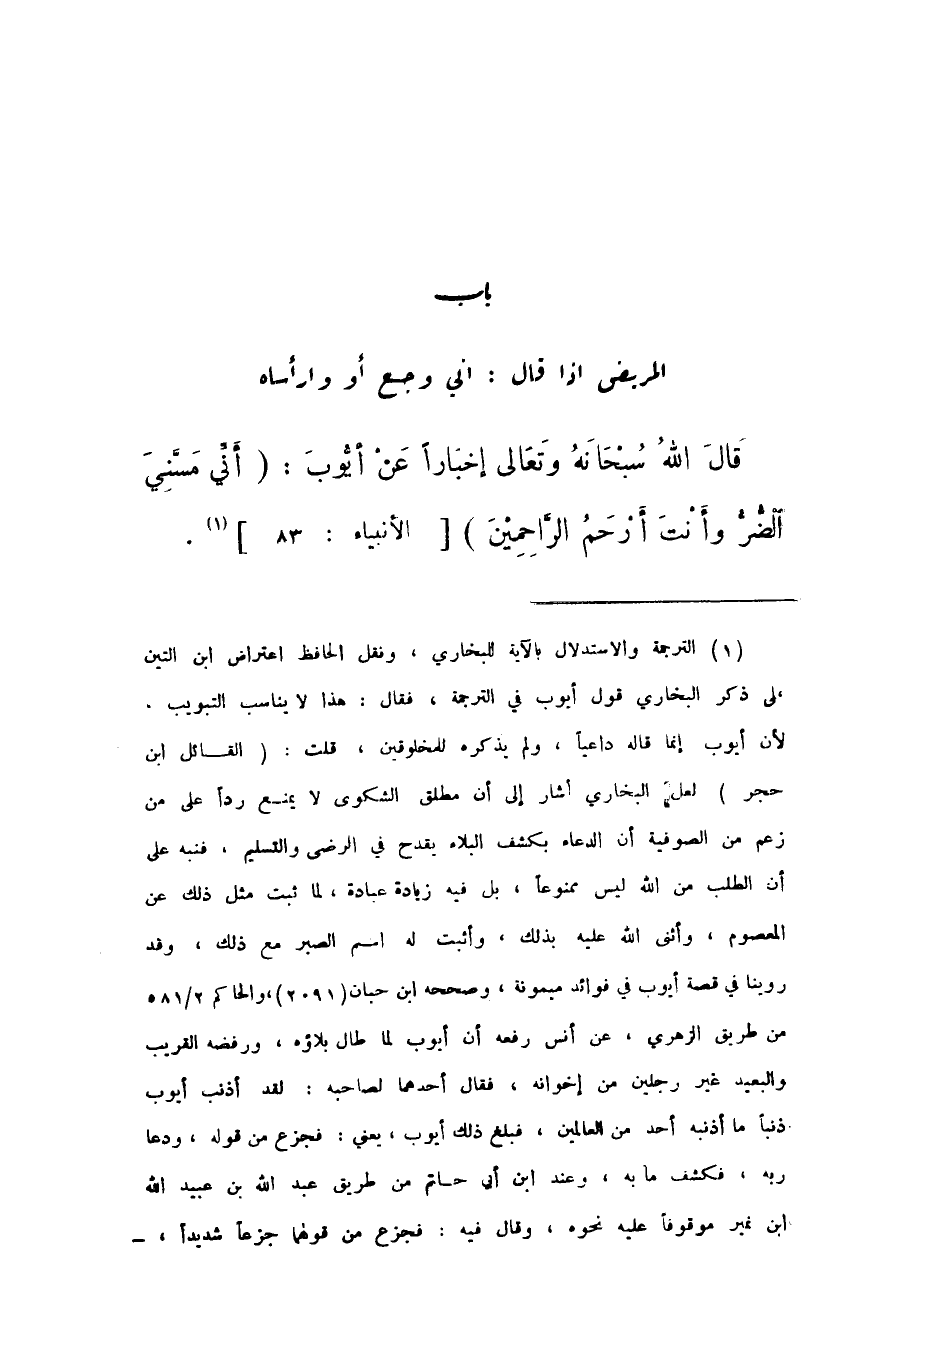 باب
المريض اذا قال : اني وجع أو وارأساه
قَالَ اللهُ سُبْحَانَهُ وتَعَالى إخبَاراً عَنْ أيُّوبَ : ( أَنِّي مَسَّنِيَ
ٱلضُّرُّ وأَنْتَ أَرْحَمُ الرَّاحِمِيْنَ ) [ الأنبياء : ٨٣ ] (١) .
(١) الترجمة والاستدلال بالآية للبخاري ، ونقل الحافظ اعتراض ابن التين
لى ذكر البخاري قول أيوب في الترجمة ، فقال : هذا لا يناسب التبويب .
لأن أيوب إنما قاله داعياً ، ولم يذكره للمخلوقين ، قلت : ( القائل ابن
حجر ) لعل البخاري أشار إلى أن مطلق الشكوى لا يمنع رداً على من
زعم من الصوفية أن الدعاء بكشف البلاء يقدح في الرضى والتسليم ، فنبه على
أن الطلب من الله ليس ممنوعاً ، بل فيه زيادة عبادة ، لما ثبت مثل ذلك عن
المعصوم ، وأثنى الله عليه بذلك ، وأثبت له اسم الصبر مع ذلك ، وقد
روينا في قصة أيوب في فوائد ميمونة ، وصححه ابن حبان (٢٠٩١)،والحاكم ٥٨١/٢
من طريق الزهري ، عن أنس رفعه أن أيوب لما طال بلاؤه ، ورفضه القريب
والبعيد غير رجلين من إخوانه ، فقال أحدهما لصاحبه : لقد أذنب أيوب
ذنباً ما أذنبه أحد من العالمين ، فبلغ ذلك أيوب ، يعني : فجزع من قوله ، ودعا
ربه ، فكشف مابه ، وعند ابن أبي حاتم من طريق عبد الله بن عبيد الله
ابن نمير موقوفاً عليه نحوه ، وقال فيه : فجزع من قولهما جزعاً شديداً ، ـ